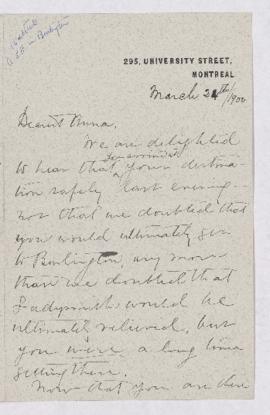 295, UNIVERSITY STREET,
MONTREAL
March 24th/1900
Dearest Anna,
We are delighted
to hear that you arrived at your destina-
tion safely last evening -
not that we doubted that
you would ultimately get
to Burlington any more
than we doubted that
Ladysmith would be
ultimately relieved, but
you were a long time
getting there.
Now that you are there